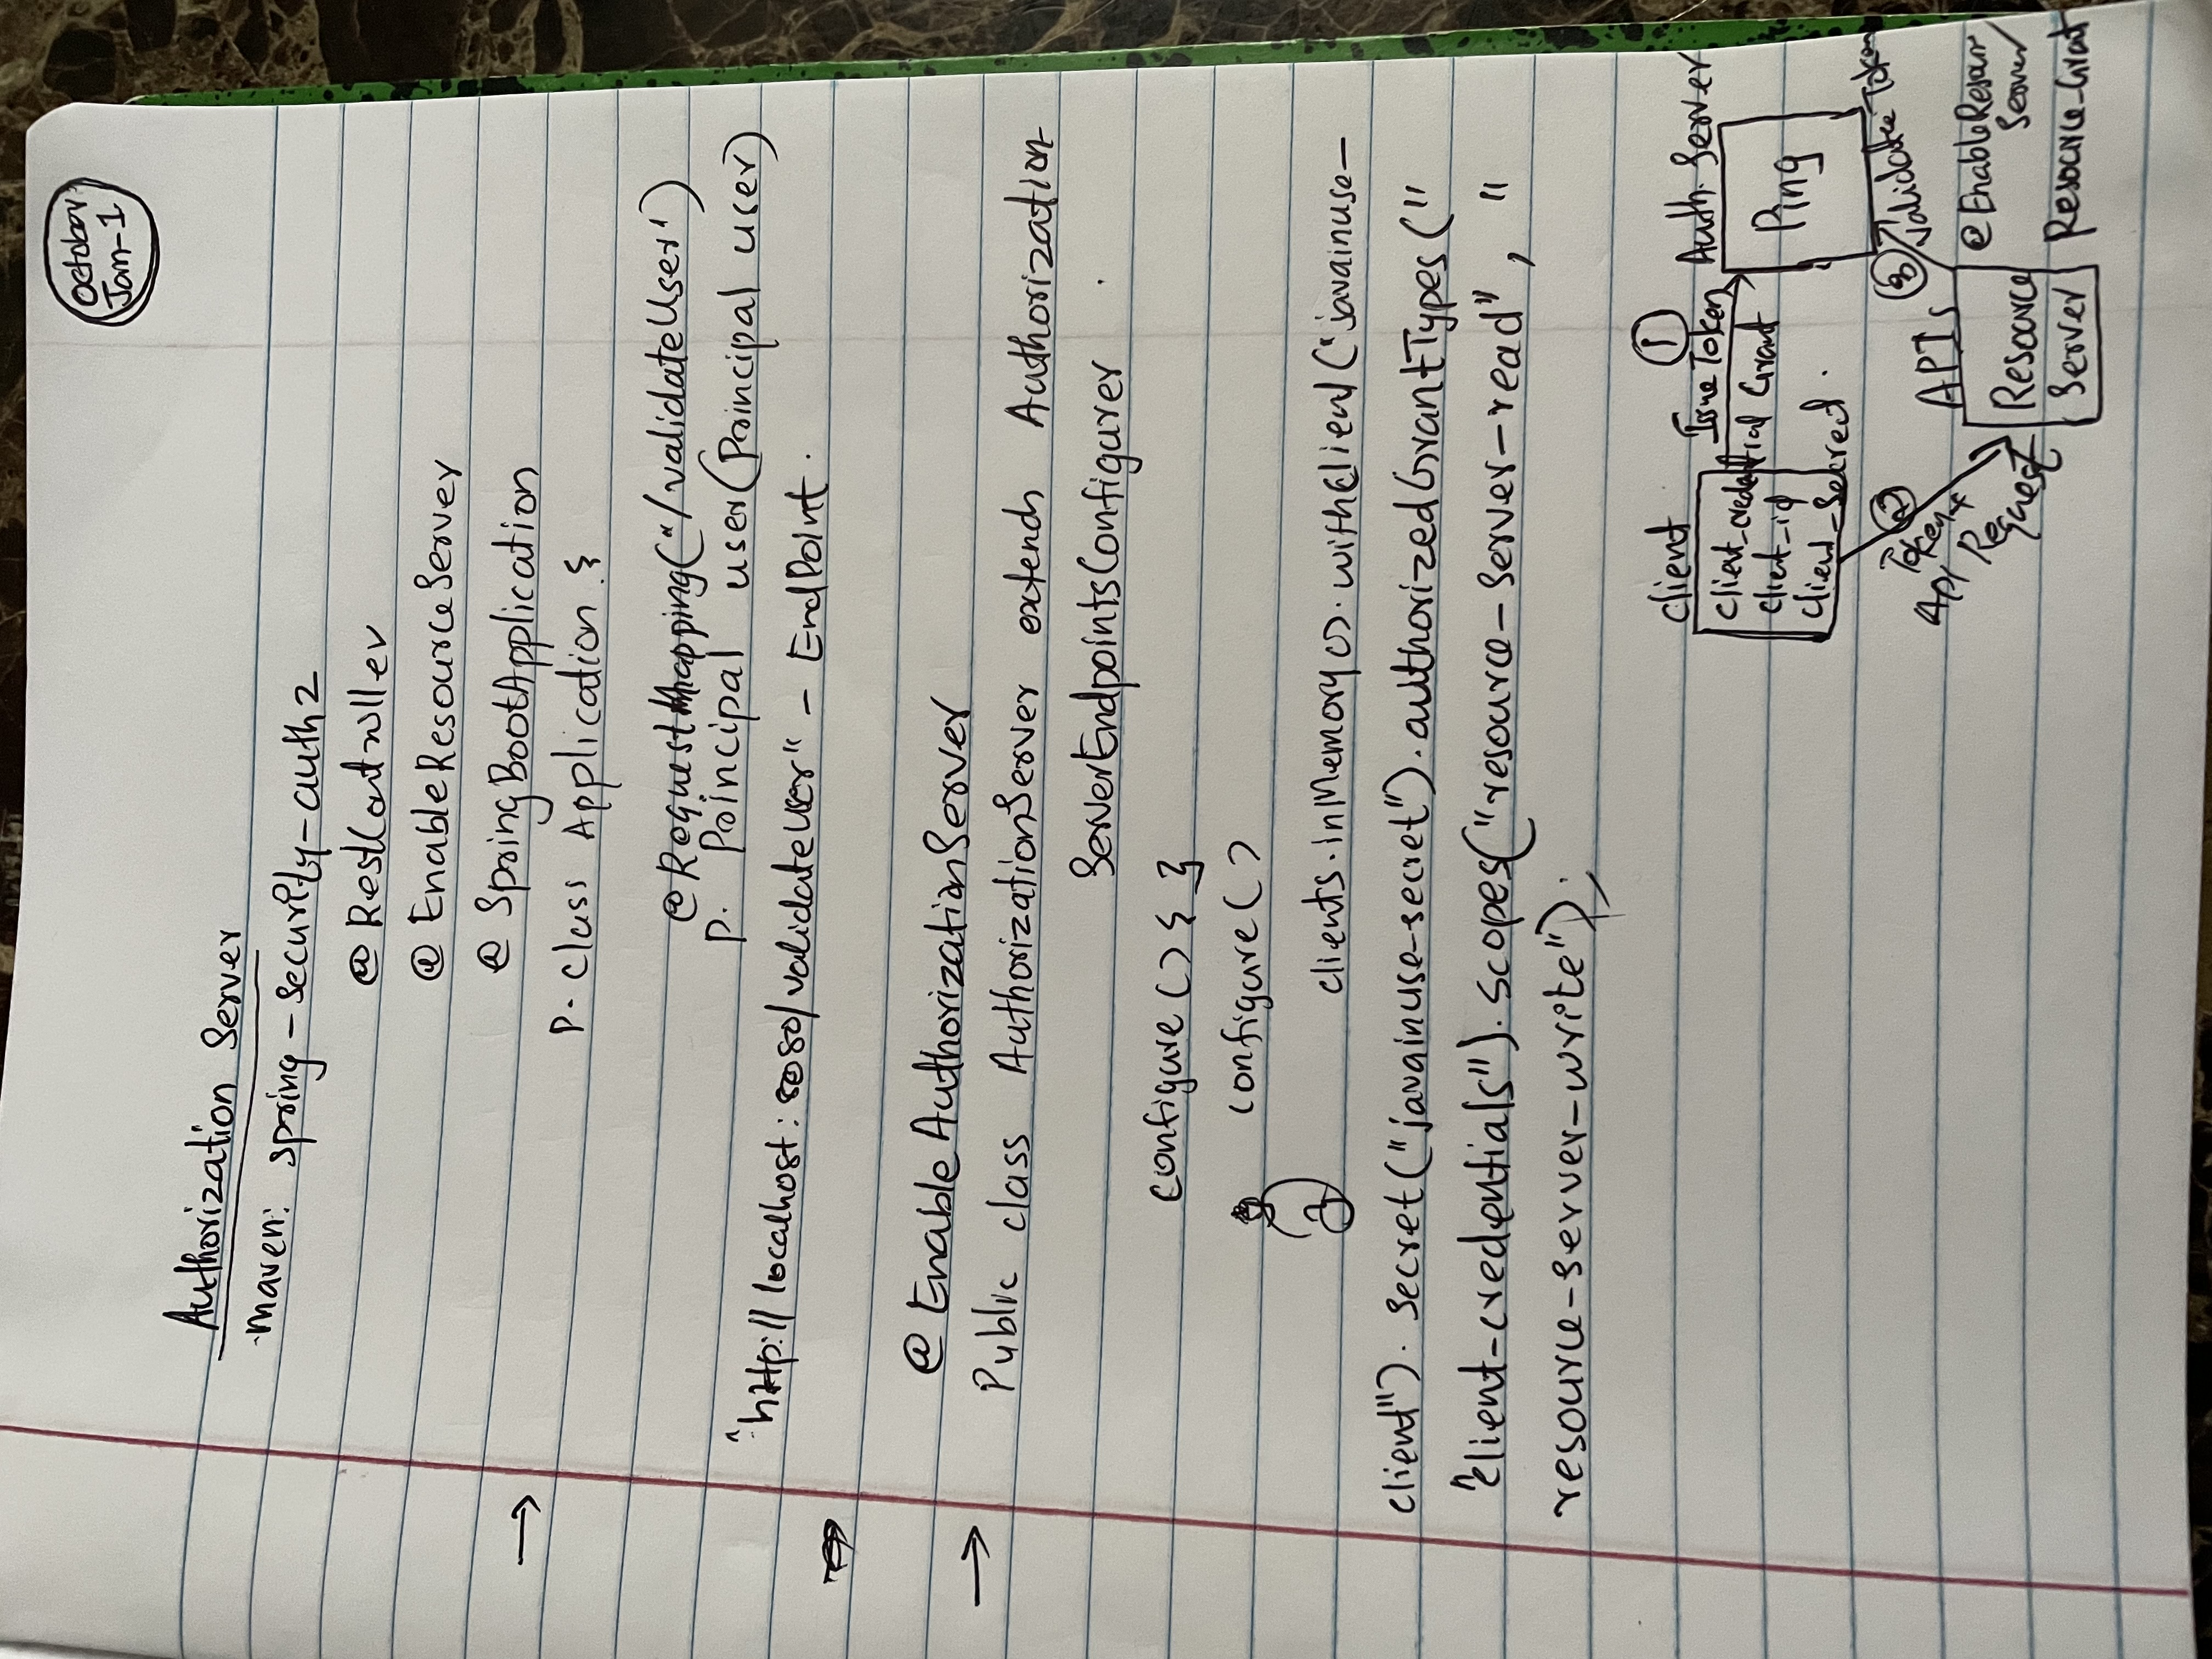 October
Jam-1
Authorization Server
maven: spring-security-auth2
@RestController
@EnableResourceServer
@SpringBootApplication
P. class Application {
@RequestMapping("/validateUser")
P. Principal user(Principal user)
"http://localhost:8080/validateUser" - EndPoint.
@EnableAuthorizationServer
Public class AuthorizationServer extends Authorization
ServerEndpointsConfigurer
configure() { }
configure()
clients.inMemory().withClient("javainuse-
client").secret("javainuse-secret").authorizedGrantTypes("
"client-credentials").scopes("resource-server-read", "
resource-server-write");
1
client
Issue Token
Auth. Server
client_credential Grant
client_id
client_secret.
Ping
2
Token +
Api Request
3
Validate Token
APIs
Resource
Server
@EnableResour
Server
Resource_Grant